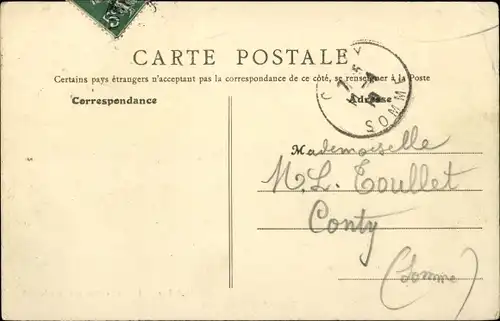 CARTE POSTALE
Certains pays étrangers n'acceptant pas la correspondance de ce côté, se renseigner à la Poste
Correspondance
Adresse
SOMME
Mademoiselle
M. L. Toullet
Conty
(Somme)